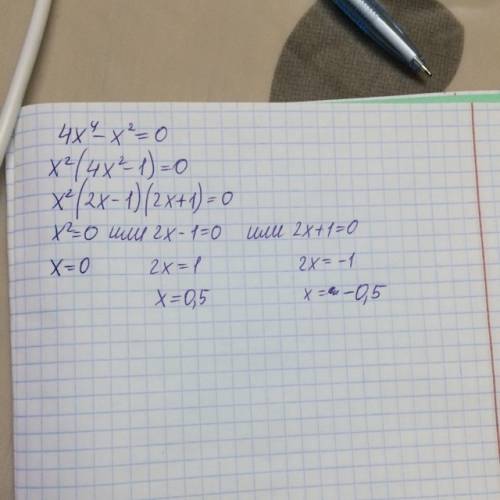 4x⁴ - x² = 0
x²(4x² - 1) = 0
x²(2x - 1)(2x + 1) = 0
x² = 0 или 2x - 1 = 0 или 2x + 1 = 0
x = 0 2x = 1 2x = -1
x = 0,5 x = -0,5